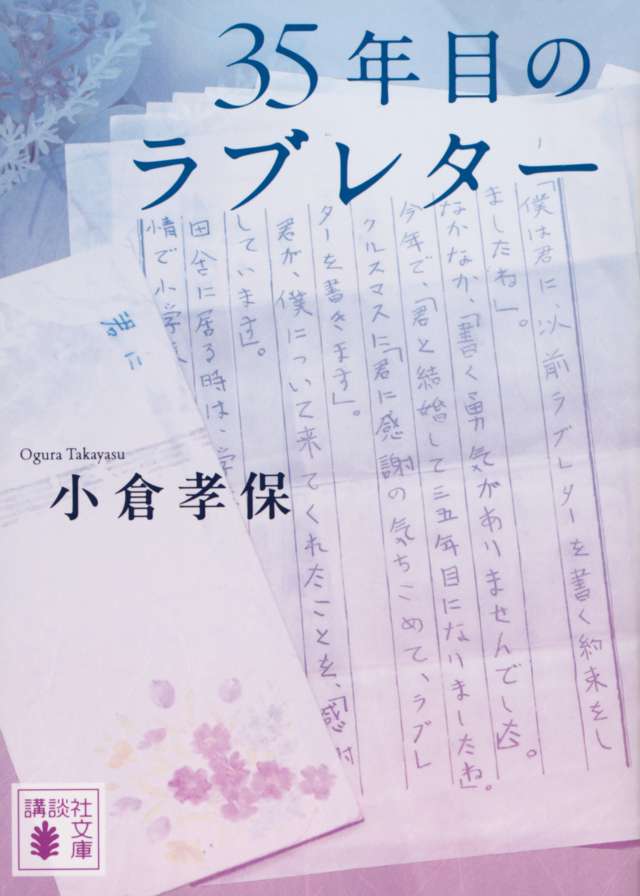 35年目の
ラブレター
「僕は君に、以前ラブレターを書く約束をし
ましたね」。
なかなか、「書く勇気がありませんでした。
今年で、「君と結婚して三五年目になりましたね」。
クルスマスに「君に感謝の気ちこめて、ラブレ
ターを書きます」。
君が、僕について来てくれたことを、「感謝
しています」。
田舎に居る時は、学
情で小学
君に
Ogura Takayasu
小倉孝保
講談社
文庫